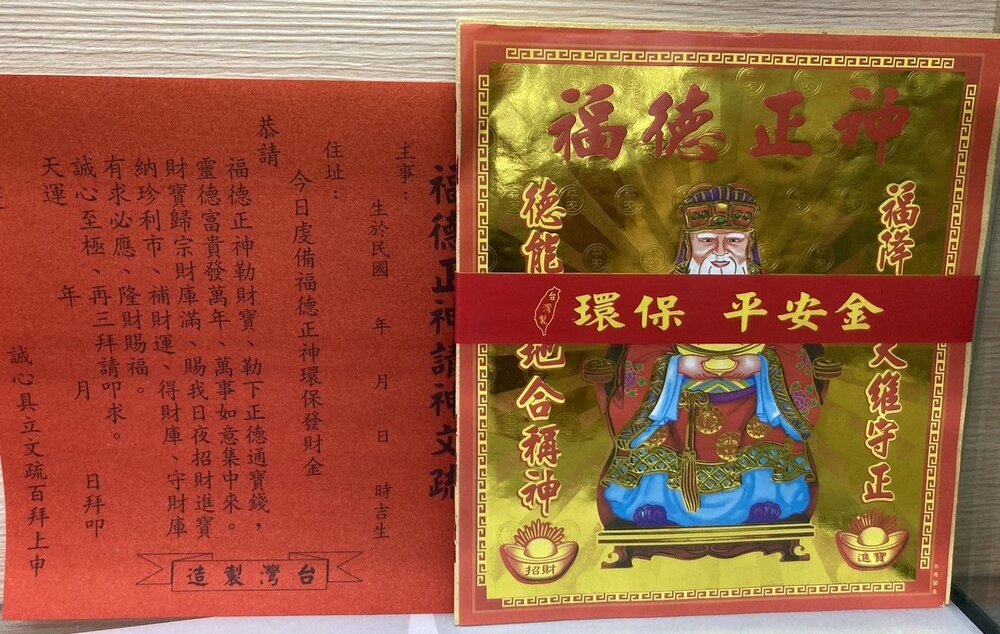 福德正神請神文疏
主事：生於民國 年 月 日 時吉生
住址：
今日虔備福德正神環保發財金
恭請
福德正神勒財寶、勒下正德通寶錢，
靈德富貴發萬年、萬事如意集中來。
財寶歸宗財庫滿、賜我日夜招財進寶
納珍利市、補財運、得財庫、守財庫
有求必應、隆財賜福。
誠心至極、再三拜請叩求。
天運 年 月 日拜叩
誠心具立文疏百拜上申
台灣製造
福德正神
福降
維守正
德能
地合稱神
台灣製
環保 平安金
招財
進寶
台灣製造